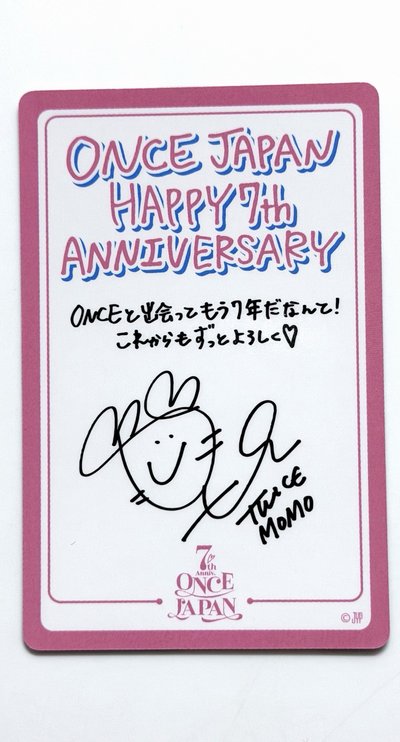 ONCE JAPAN
HAPPY 7th
ANNIVERSARY
ONCEと出会ってもう7年だなんて!
これからもずっとよろしく♡
TWICE
MOMO
7th
Anniv.
ONCE
JAPAN
©